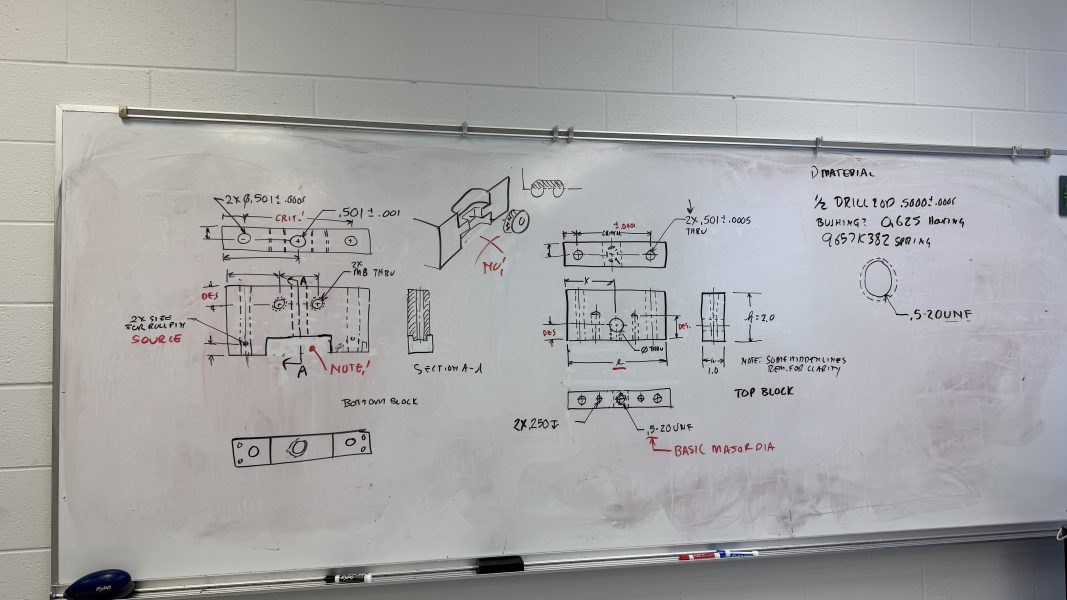 2X Ø.501 ± .0005
CRIT.!
.501 ± .001
2X
M8 THRU
A
DES
2X SIZE
FOR ROLL PIN
SOURCE
A
NOTE!
SECTION A-A
BOTTOM BLOCK
NO!
±.0001
2X .501 ± .0005
THRU
X
DES
DES.
Ø THRU
l
h = 2.0
1.0
NOTE: SOME HIDDEN LINES
REM. FOR CLARITY
TOP BLOCK
2X .250
.5-20UNF
BASIC MAJOR DIA
1) MATERIAL
1/2 DRILL ROD .5000 ± .0005
BUSHING? 0.625 HOUSING
9657K382 SPRING
.5-20UNF
EXPO